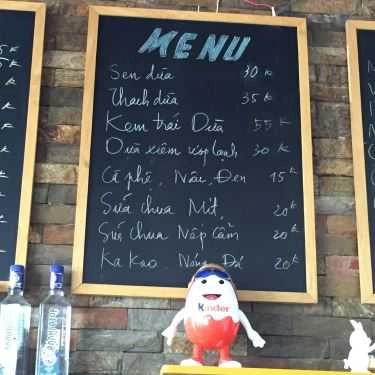 MENU
Sen dừa 30k
Thach dừa 35k
Kem trái Dừa 55k
Dừa xiêm ướp lạnh 30k
Cà phê, Nâu, Đen 15k
Sữa chua Mít, 20k
Sữa chua Nếp Cẩm 20k
Ka Kao. Nóng Đá 20k
Kinder